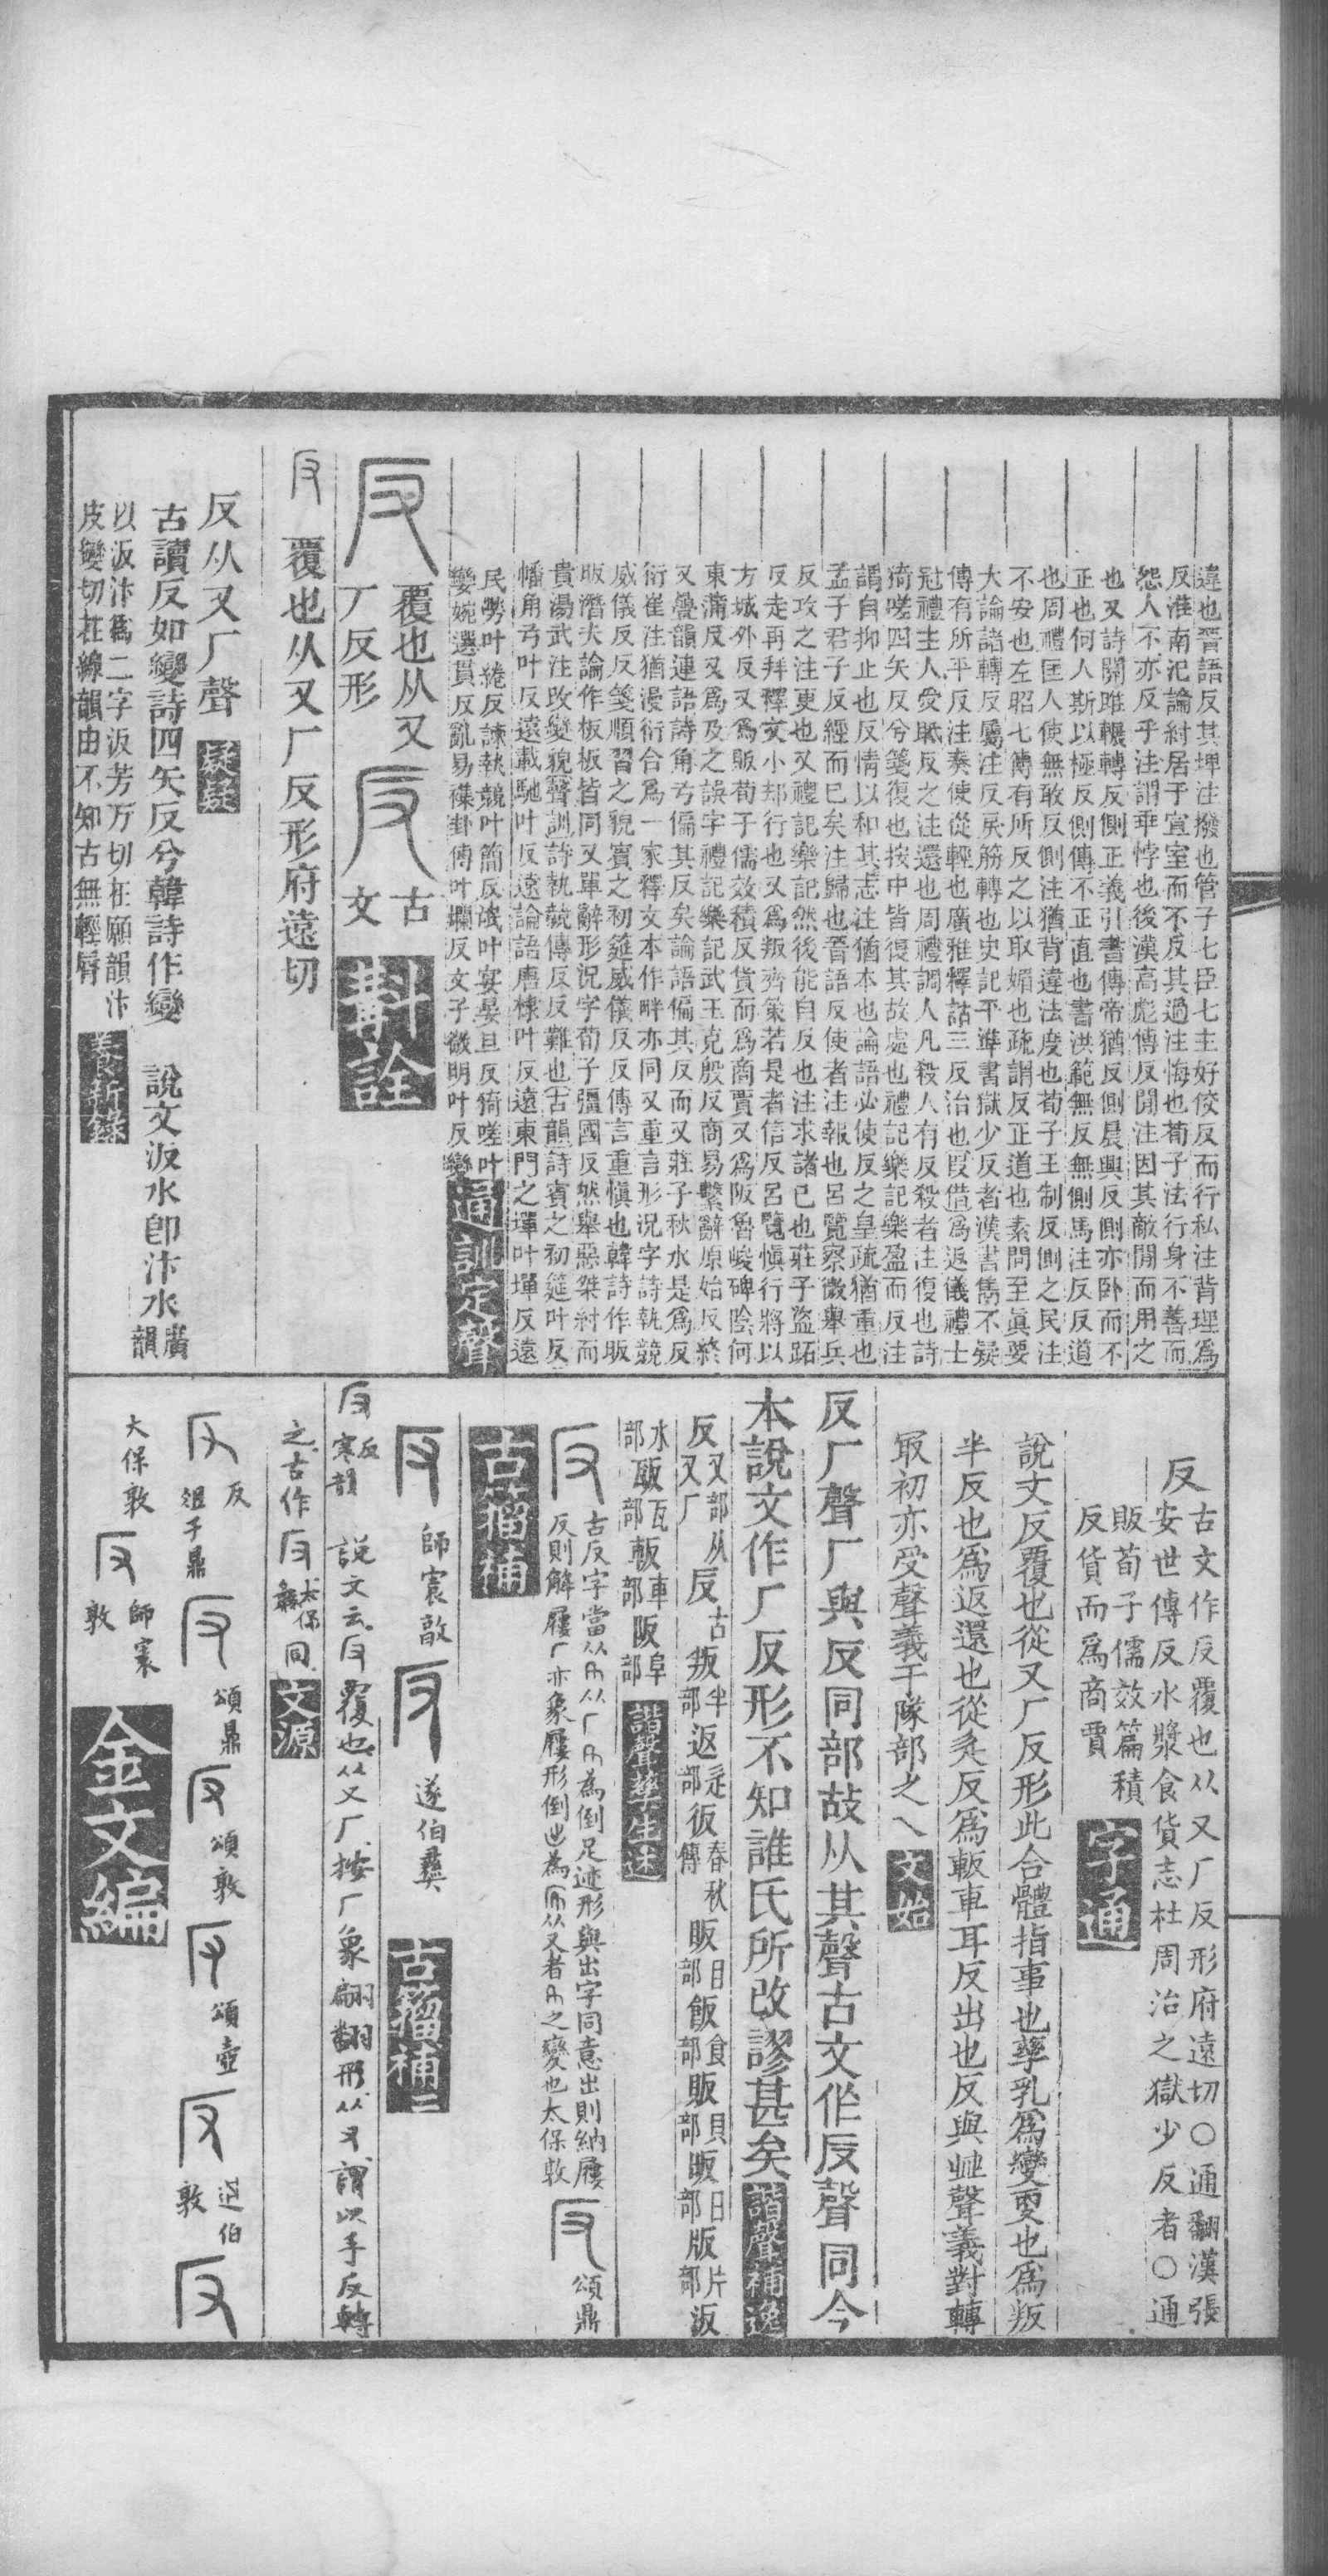 違也晉語反其埤注撥也管子七臣七主好佼反而行私注背理爲
反淮南氾論紂居于宣室而不反其過注悔也荀子法行身不善而
怨人不亦反乎注謂乖悖也後漢高彪傳反閒注因其敵閒而用之
也又詩關雎輾轉反側正義引書傳帝猶反側晨興反側亦卧而不
正也何人斯以極反側傳不正直也書洪範無反無側馬注反反道
也周禮匡人使無敢反側注猶背違法度也荀子王制反側之民注
不安也左昭七傳有所反之以取媚也疏謂反正道也素問至眞要
大論諸轉反屬注反戾筋轉也史記平準書獄少反者漢書雋不疑
傳有所平反注奏使從輕也廣雅釋詁三反治也叚借爲返儀禮士
冠禮主人受眡反之注還也周禮調人凡殺人有反殺者注復也詩
猗嗟四矢反兮箋復也按中皆復其故處也禮記樂記樂盈而反注
謂自抑止也反情以和其志注猶本也論語必使反之皇疏猶重也
孟子君子反經而已矣注歸也晉語反使者注報也呂覽察微舉兵
反攻之注更也又禮記樂記然後能自反也注求諸己也莊子盜跖
反走再拜釋文小却行也又爲叛齊策若是者信反呂覽愼行將以
方城外反又爲販荀子儒效積反貨而爲商賈又爲阪魯峻碑陰何
東蒲反又爲及之誤字禮記樂記武王克殷反商易繫辭原始反終
又疊韻連語詩角弓偏其反矣論語偏其反而又莊子秋水是爲反
衍崔注猶漫衍合爲一家釋文本作畔亦同又重言形況字詩執競
威儀反反箋順習之貌賓之初筵威儀反反傳言重愼也韓詩作昄
昄潛夫論作板板皆同又單辭形況字荀子彊國反然舉惡桀紂而
貴湯武注改變貌聲訓詩執競傳反反難也古韻詩賓之初筵叶反
幡角弓叶反遠載馳叶反遠論語唐棣叶反遠東門之墠叶墠反遠
民勞叶綣反諫執競叶簡反氓叶宴晏旦反猗嗟叶
孌婉選貫反亂易襍卦傳叶爛反文子微明叶反變通訓定聲
覆也从又
厂反形
古
文
斠詮
覆也从又厂反形府遠切
反从又厂聲疑疑
古讀反如變詩四矢反兮韓詩作變 說文汳水卽汴水廣
韻
以汳汴爲二字汳芳万切在願韻汴
皮變切在線韻由不知古無輕脣養新錄
反古文作反覆也从又厂反形府遠切〇通翻漢張
安世傳反水漿食貨志杜周治之獄少反者〇通
販荀子儒效篇積
反貨而爲商賈字通
說文反覆也從又厂反形此合體指事也孳乳爲變更也爲叛
半反也爲返還也從辵反爲軬車耳反出也反與𠦒聲義對轉
冣初亦受聲義于隊部之乀文始
反厂聲厂與反同部故从其聲古文作反聲同今
本說文作厂反形不知誰氏所改謬甚矣諧聲補逸
反又部从
又厂反古叛半
部返辵
部彶春秋
傳眅目
部飯食
部販貝
部昄日
部版片
部汳
水
部瓪瓦
部軬車
部阪阜
部諧聲孳生述
古反字當从
反則解屨
頌鼎
古籀補
師寰敦
遂伯彝
古籀補二
反
寒韻 說文云反覆也从又厂按厂象翩翻形从又謂以手反轉
之古作太保
彝同文源
反
沮子鼎
頌鼎
頌敦
頌壺
迣伯
敦
大保敦
師寰
敦
金文編